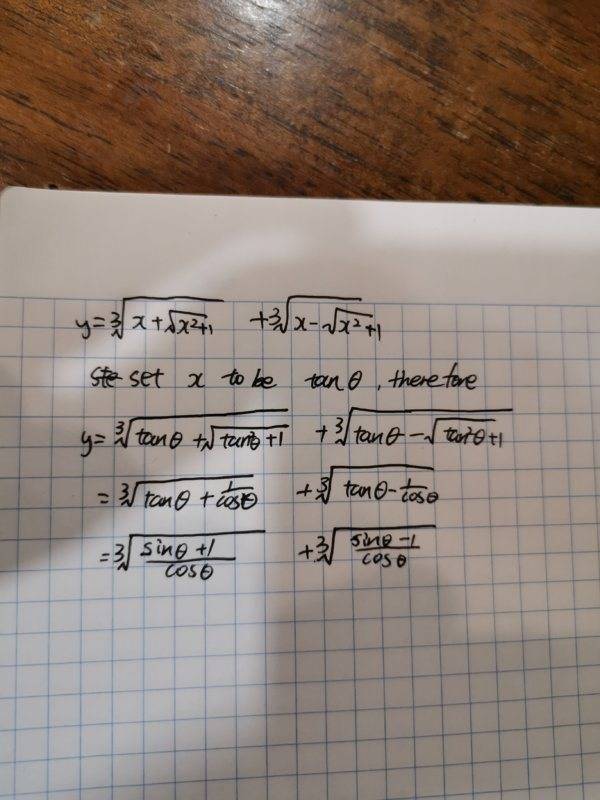 y=∛(x+√(x²+1)) +∛(x-√(x²+1))
set x to be tanθ, therefore
y=∛(tanθ+√(tan²θ+1)) +∛(tanθ-√(tan²θ+1))
=∛(tanθ+1/cosθ) +∛(tanθ-1/cosθ)
=∛((sinθ+1)/cosθ) +∛((sinθ-1)/cosθ)